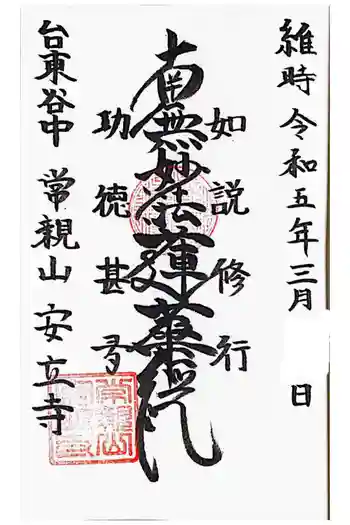 維時 令和五年三月 日
如説修行
南無妙法蓮華経
功徳甚多
台東谷中 常親山 安立寺